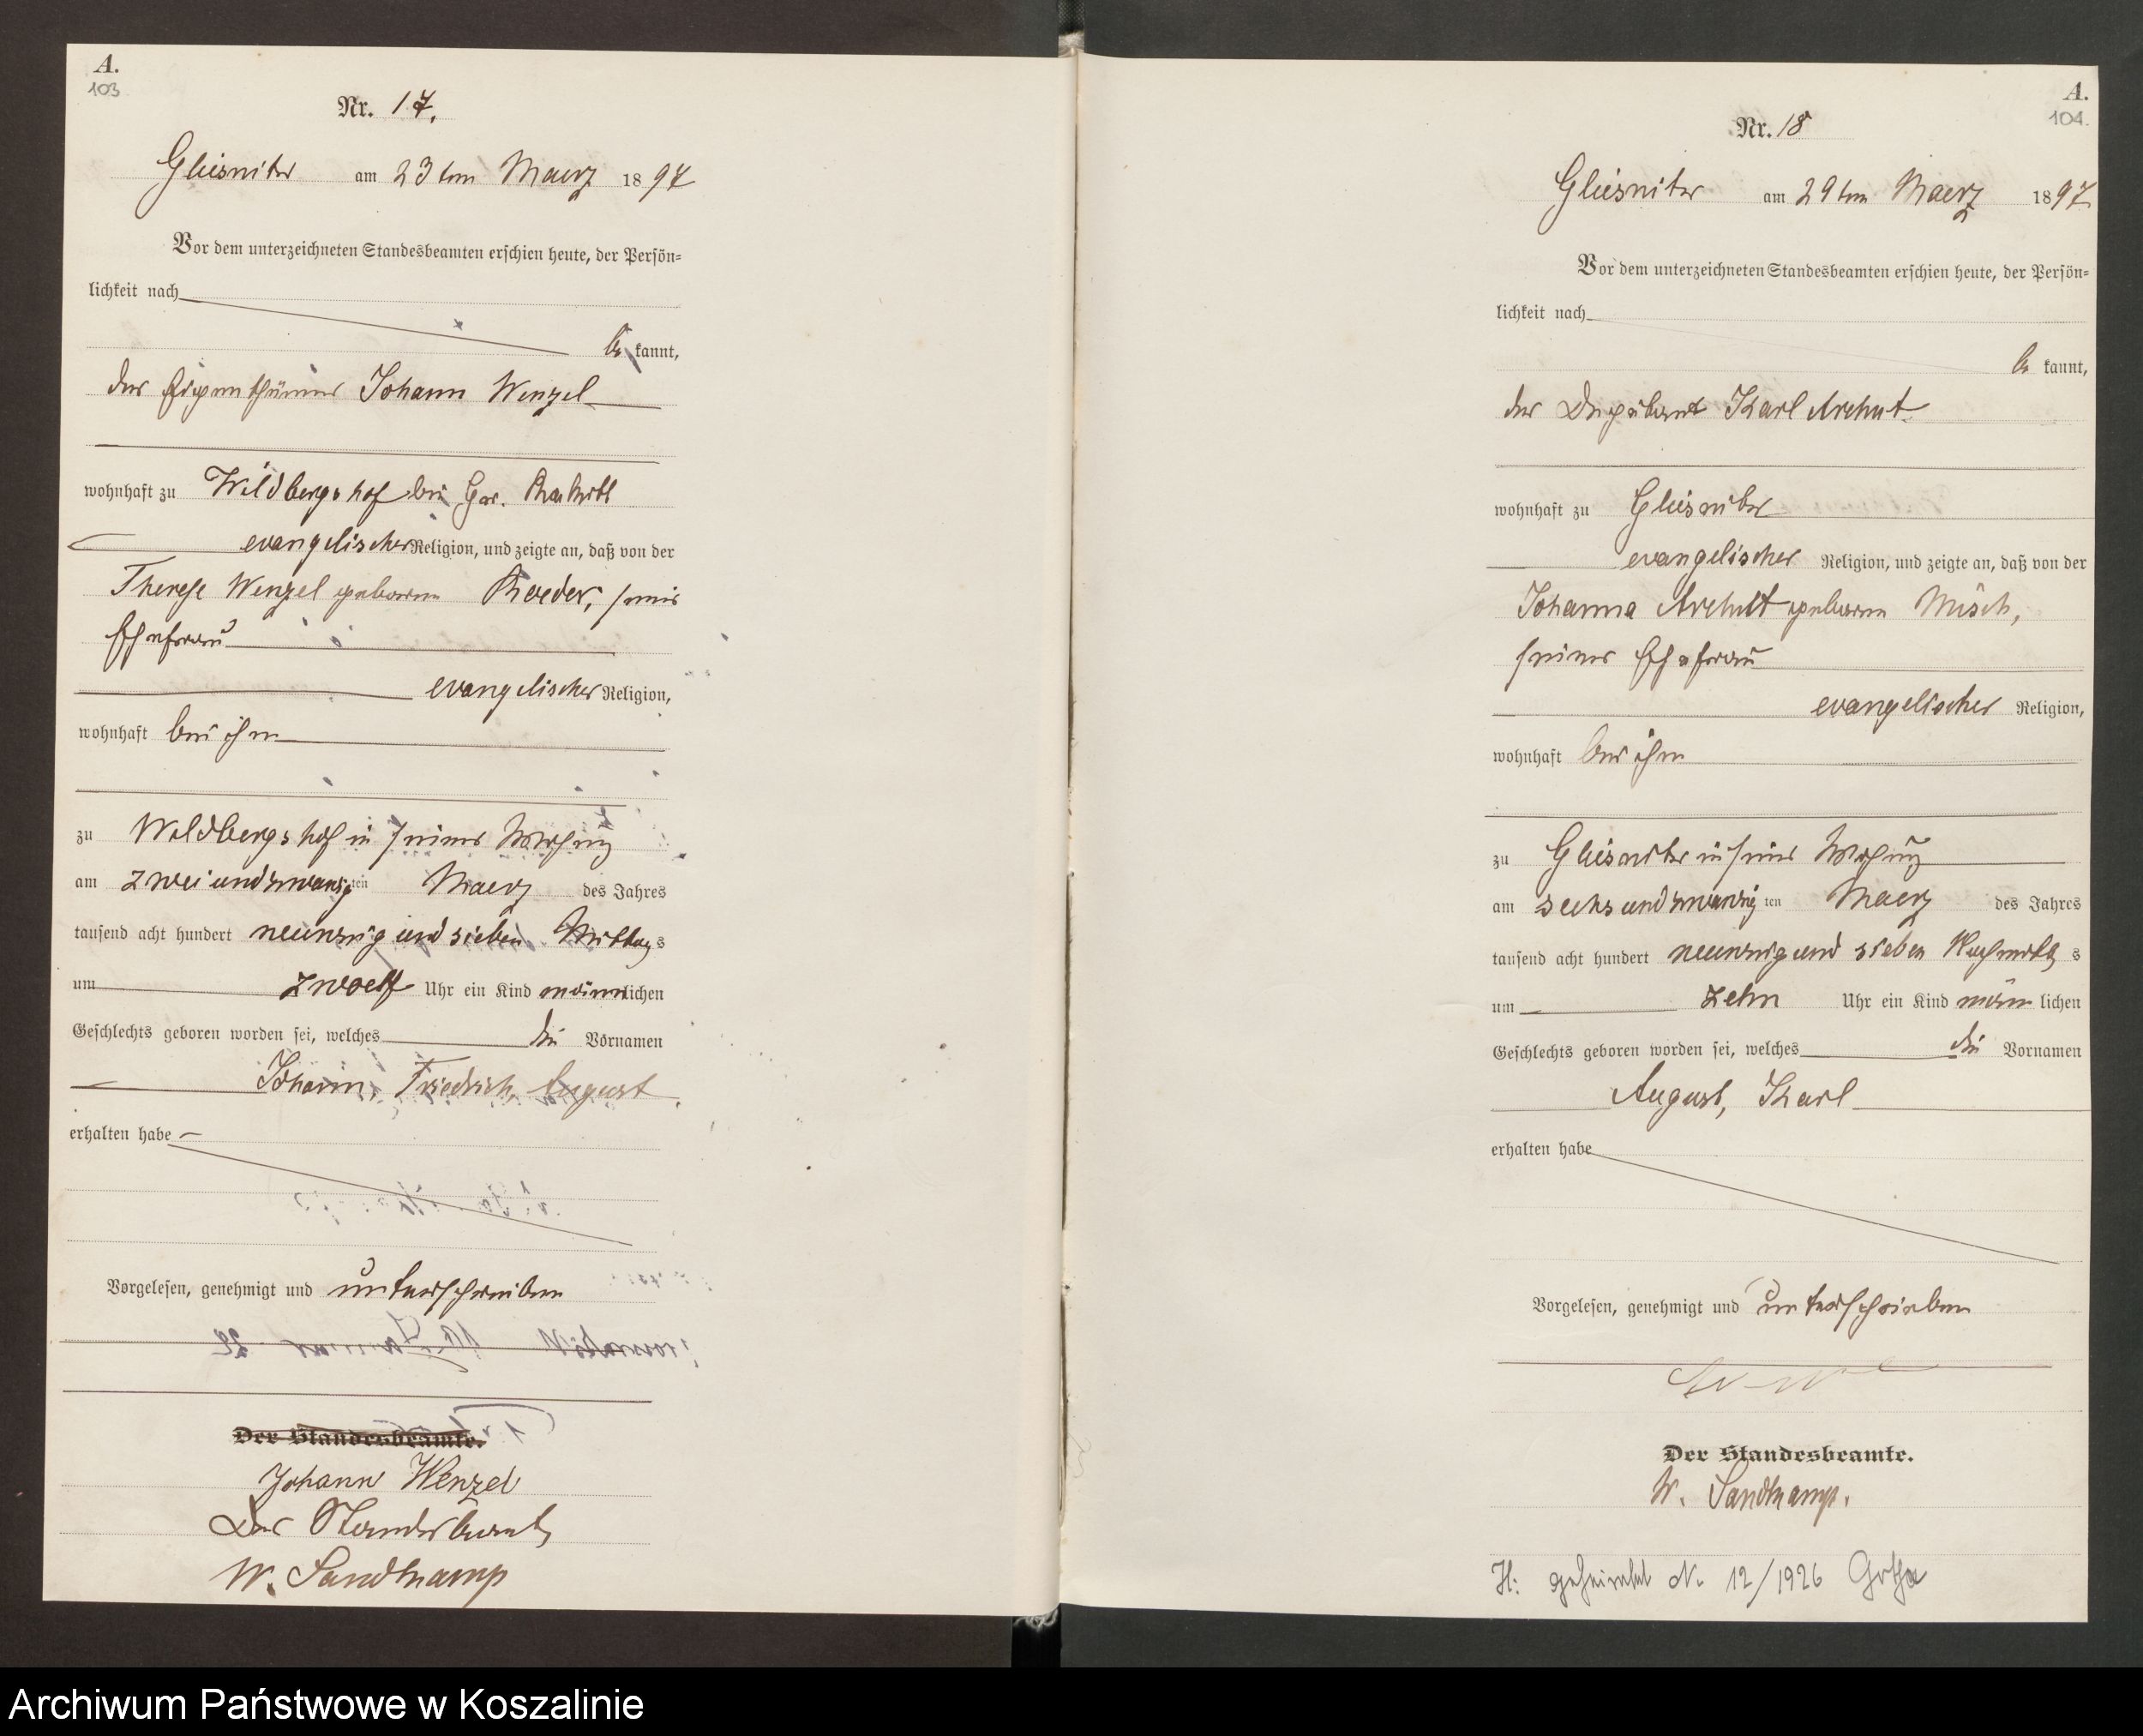 A.
103
Nr. 17.
Gliesnitz am 23ten Maerz 1897
Vor dem unterzeichneten Standesbeamten erschien heute, der Persön-
lichkeit nach
be kannt,
der Eigenthümer Johann Wenzel
wohnhaft zu Wildbergshof bei Gr.
evangelischer Religion, und zeigte an, daß von der
Therese Wenzel geborene Roeder, seine
Ehefrau
evangelischer Religion,
wohnhaft bei ihm
zu Wildbergshof in seiner Wohnung
am zweiundzwanzig ten Maerz des Jahres
tausend acht hundert neunzig und sieben Mittag s
um zwoelf Uhr ein Kind männlichen
Geschlechts geboren worden sei, welches die Vornamen
Johann, Friedrich, August
erhalten habe
Vorgelesen, genehmigt und unterschrieben
Der Standesbeamte.
Johann Wenzel
Der Standesbeamte
W. Sandkamp
A.
104.
Nr. 18
Gliesnitz am 29ten Maerz 1897
Vor dem unterzeichneten Standesbeamten erschien heute, der Persön-
lichkeit nach
be kannt,
der Deputant Karl Archut
wohnhaft zu Gliesnitz
evangelischer Religion, und zeigte an, daß von der
Johanna Archutt geborene Müsch,
seiner Ehefrau
evangelischer Religion,
wohnhaft bei ihm
zu Gliesnitz in seiner Wohnung
am sechsundzwanzig ten Maerz des Jahres
tausend acht hundert neunzig und sieben Nachmittag s
um zehn Uhr ein Kind männ lichen
Geschlechts geboren worden sei, welches die Vornamen
August, Karl
erhalten habe
Vorgelesen, genehmigt und unterschrieben
Der Standesbeamte.
W. Sandkamp.
H: geheiratet Nr. 12/1926 Gotha
Archiwum Państwowe w Koszalinie